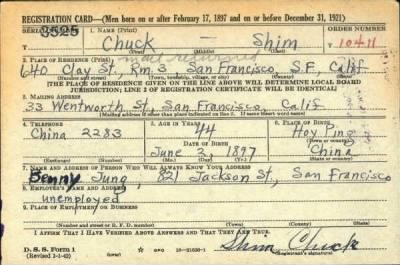 REGISTRATION CARD—(Men born on or after February 17, 1897 and on or before December 31, 1921)
SERIAL 3525 1. NAME (Print) ORDER NUMBER
Chuck — Shim 10411
(First) (Middle) (Last)
2. PLACE OF RESIDENCE (Print)
640 Clay St, Rm. S San Francisco, S.F. Calif
(Number and street) (Town, township, village, or city) (County) (State)
[THE PLACE OF RESIDENCE GIVEN ON THE LINE ABOVE WILL DETERMINE LOCAL BOARD
JURISDICTION; LINE 2 OF REGISTRATION CERTIFICATE WILL BE IDENTICAL]
3. MAILING ADDRESS
33 Wentworth St, San Francisco, Calif
[Mailing address if other than place indicated on line 2. If same insert word same]
4. TELEPHONE 5. AGE IN YEARS 6. PLACE OF BIRTH
China 2283 44 Hoy Ping
DATE OF BIRTH (Town or county)
June 2, 1897 China
(Exchange) (Number) (Mo.) (Day) (Yr.) (State or country)
7. NAME AND ADDRESS OF PERSON WHO WILL ALWAYS KNOW YOUR ADDRESS
Benny Jung, 821 Jackson St, San Francisco
8. EMPLOYER'S NAME AND ADDRESS
unemployed
9. PLACE OF EMPLOYMENT OR BUSINESS
(Number and street or R. F. D. number) (Town) (County) (State)
I AFFIRM THAT I HAVE VERIFIED ABOVE ANSWERS AND THAT THEY ARE TRUE.
D. S. S. Form 1
(Revised 2-1-42) Shim Chuck
(Registrant's signature)